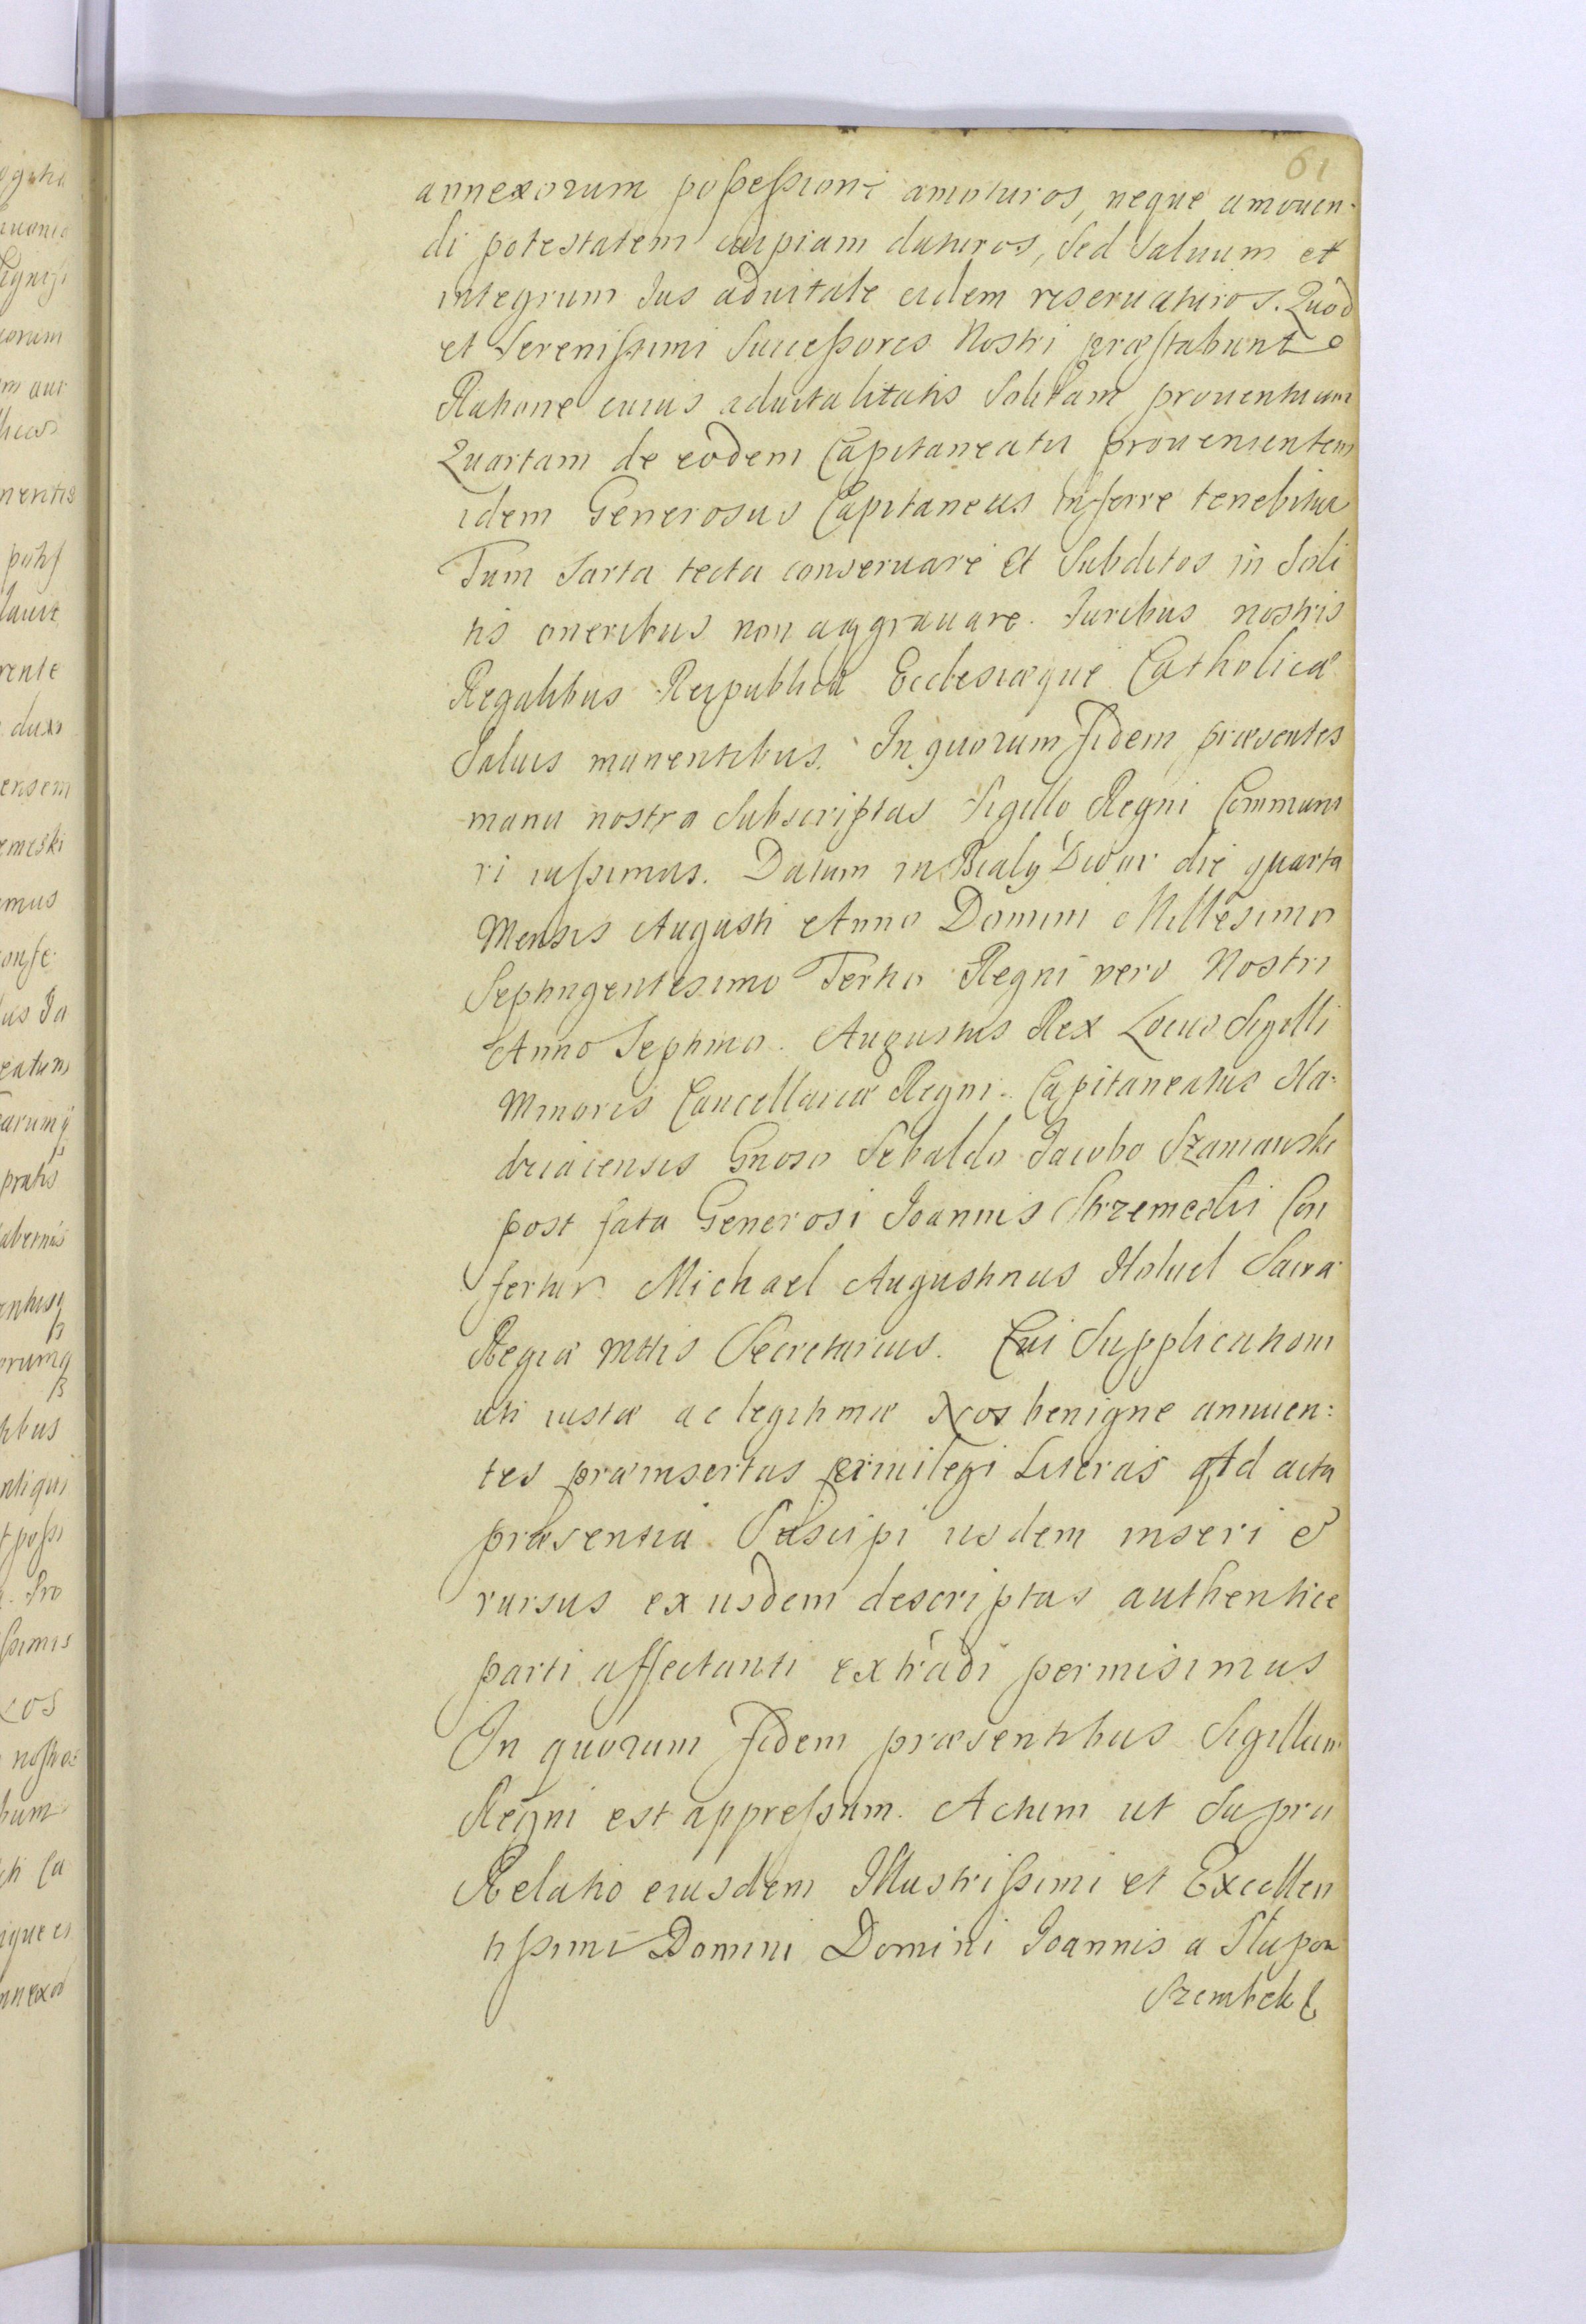 61
annexorum possessione amoturos, neque amouen-
di potestatem cuipiam daturos, Sed Saluum et
integrum Jus aduitale eidem reseruaturos. Quod
et Serenissimi Successores Nostri præstabunt
Ratione cuius aduitalitatis Solitam prouentuum
Quartam de eodem Capitaneatu prouenientem
idem Generosus Capitaneus inferre tenebitur
Tum Sarta tecta conseruare Et Subditos in Soli
tis oneribus non aggrauare. Juribus nostris
Regalibus Reipublicæ Ecclesiæque Catholicæ
Saluis manentibus. In quorum fidem præsentes
manu nostra Subscriptas Sigillo Regni Communi
ri iussimus. Datum in Bialy Dwor die quarta
Mensis Augusti Anno Domini Millesimo
Septingentesimo Tertio Regni vero Nostri
Anno Septimo. Augustus Rex Locus Sigilli
Minoris Cancellariæ Regni. Capitaneatus
Gnoso Sebaldo Jacobo Szaniawski
post fata Generosi Joannis Strzemeski Con
fertur Michael Augustinus Holuel Sacræ
Regiæ Mttis Secretarius. Cui Supplicationi
uti iustæ ac legitimæ Nos benigne annuen:
tes præinsertas priuilegi Literas Ad acta
præsentia Suscipi iisdem inseri &
rursus ex iisdem descriptas authentice
parti affectanti extradi permisimus
In quorum fidem præsentibus Sigillum
Regni est appressum. Actum ut Supra
Relatio eiusdem Illustrissimi et Excellen
tissimi Domini Domini Joannis a Slupow
Szembek